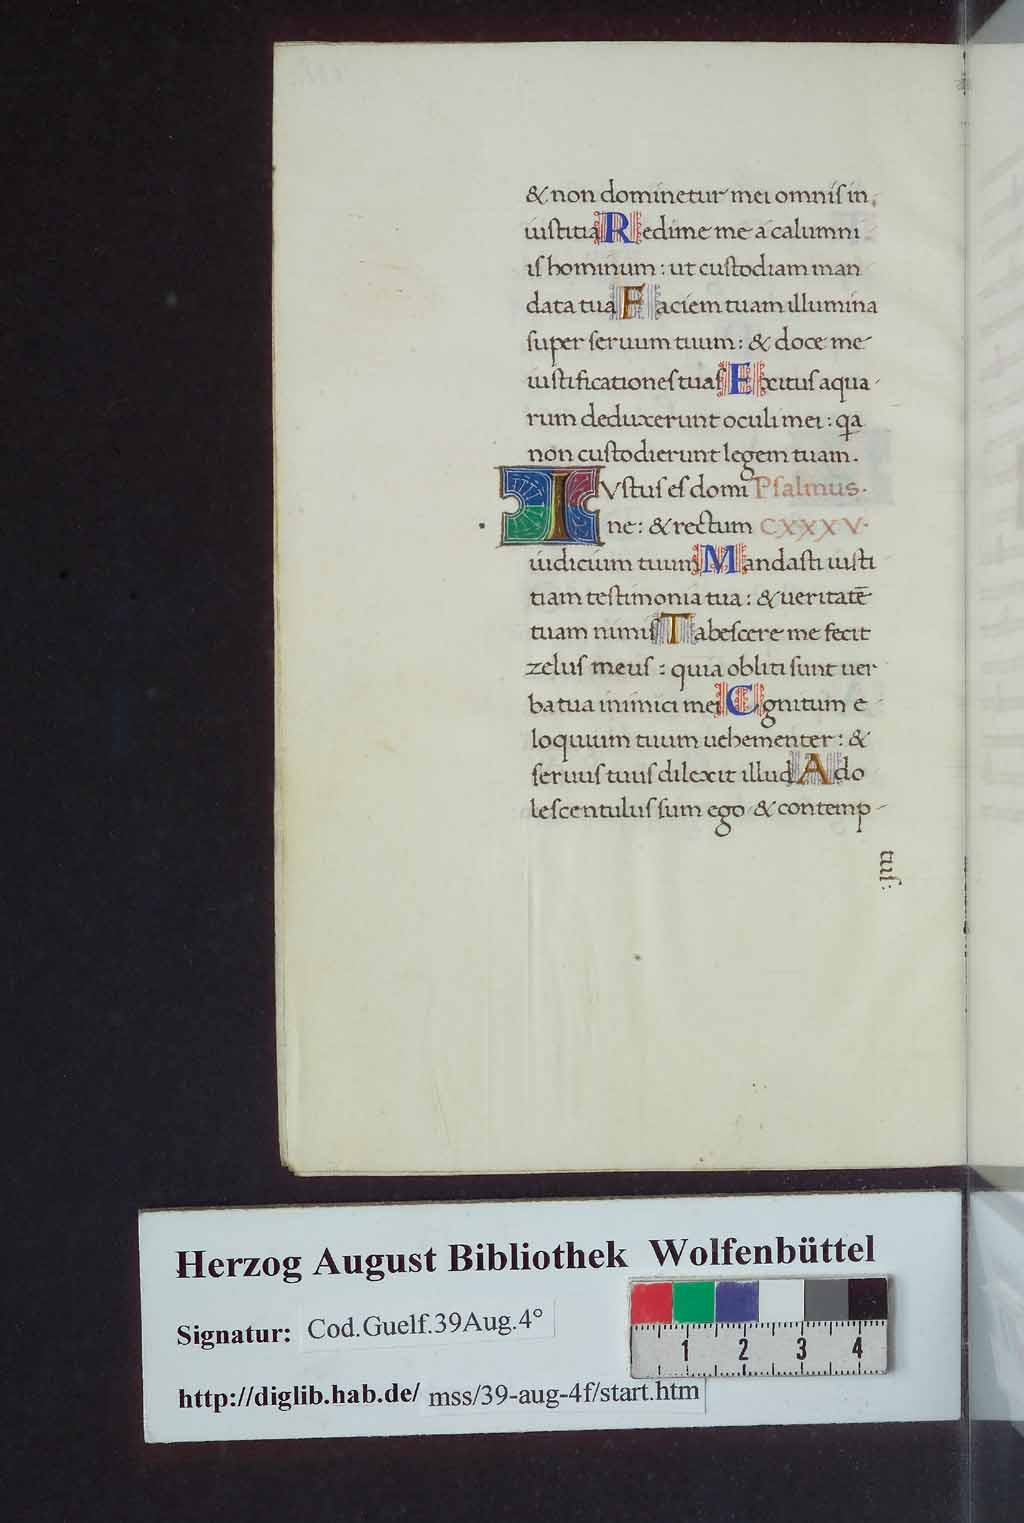 & non dominetur mei omnis in
iustitia Redime me a calumni
is hominum : ut custodiam man
data tua Faciem tuam illumina
super seruum tuum : & doce me
iustificationes tuas Exitus aqua
rum deduxerunt oculi mei : qa
non custodierunt legem tuam .
IVstus es domi Psalmus .
ne : & rectum CXXXV .
iudicium tuum Mandasti iusti
tiam testimonia tua : & ueritatē
tuam nimis Tabescere me fecit
zelus meus : quia obliti sunt uer
ba tua inimici mei Cgnitum e
loquium tuum uehementer : &
seruus tuus dilexit illud Ado
lescentulus sum ego & contemp
tus :
Herzog August Bibliothek Wolfenbüttel
Signatur: Cod.Guelf.39Aug.4°
http://diglib.hab.de/ mss/39-aug-4f/start.htm
1 2 3 4